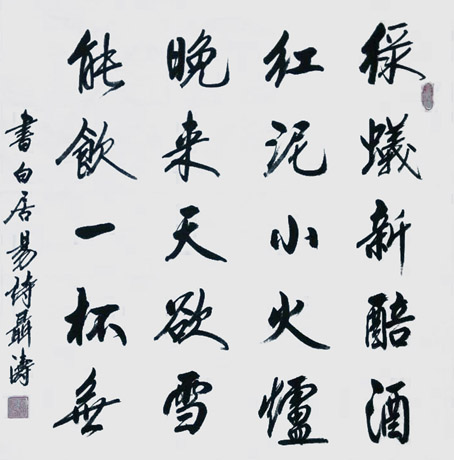 綠蟻新醅酒
紅泥小火爐
晚来天欲雪
能飲一杯無
書白居易詩聶濤